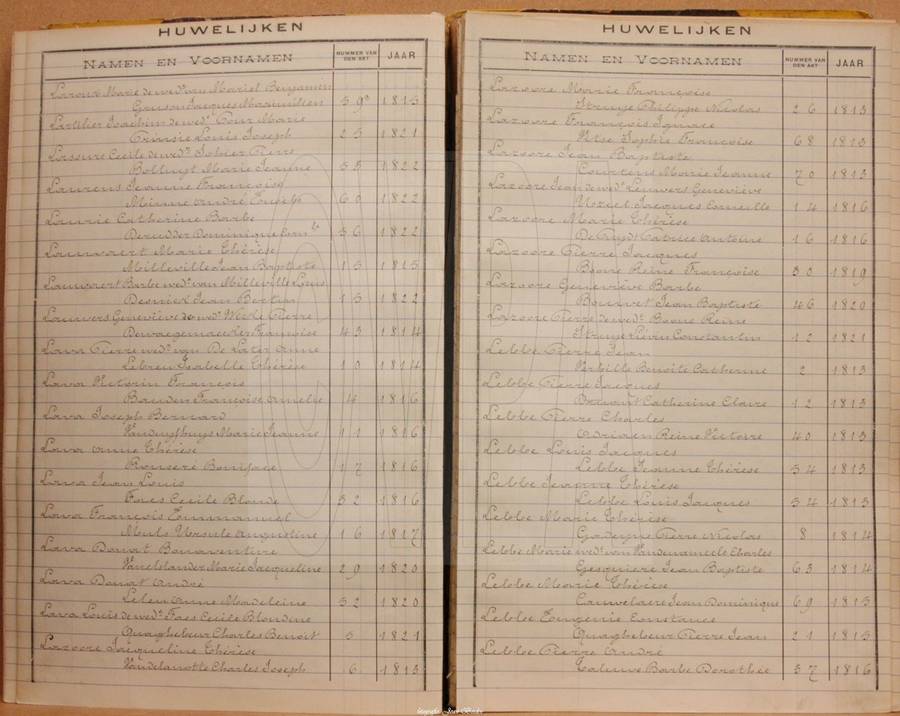 HUWELIJKEN
NAMEN EN VOORNAMEN
NUMMER VAN DEN AKT
JAAR
Laroux Marie de wedᵉ van Mariel Benjamin
Gruson Jacques Maximilien 1813
Joachim de wedʳ Cour Marie
Louis Joseph 25 1821
Cecile de wedᵉ Pierre
Marie Jeanne 55 1822
Laurens Jeanne Françoise
André 60 1822
Laurie Catherine Barbe
Deredder Dominique 56 1822
Lauwaert Marie Thérèse
Milleville Jean Baptiste 15 1815
Lauwaert Barbe wedᵉ van Milleville Louis
Desnick Jean Bertin 15 1822
Lauwers Geneviève de wedᵉ Pierre
Dewaegenaecker Françoise 43 1814
Lava Pierre wedʳ van De Later Anne
Lebreu Isabelle Thérèse 10 1814
Lava Victorin François
Bauden Françoise Amelie 4 1816
Lava Joseph Bernard
Marie Jeanne 11 1816
Lava Anne Thérèse
Rousere Boniface 17 1816
Lava Jean Louis
Faes Cecile Blonde 52 1816
Lava François Emmanuel
Muls Ursule Augustine 16 1817
Lava Donat Bonaventure
Vanelslander Marie Jacqueline 29 1820
Lava Donat André
Leleu Anne Madeleine 52 1820
Lava Louis de wedʳ Faes Cecile Blondine
Quaghebeur Charles Benoit 5 1821
Lazoore Jacqueline Thérèse
Vandelanotte Charles Joseph 6 1813
HUWELIJKEN
NAMEN EN VOORNAMEN
NUMMER VAN DEN AKT
JAAR
Lazoore Marie Françoise
Struye Philippe Nicolas 26 1813
Lazoore François Ignace
Sophie Françoise 68 1813
Lazoore Jean Baptiste
Courtens Marie Jeanne 70 1813
Lazoore Jean de wedʳ Leuvers Geneviève
Jacques Corneille 14 1816
Lazoore Marie Thérèse
De Patrice Antoine 16 1816
Lazoore Pierre Jacques
Boone Reine Françoise 30 1819
Lazoore Geneviève Barbe
Bouwet Jean Baptiste 46 1820
Lazoore Pierre de wedʳ Boone Reine
Struye Liévin Constantin 12 1821
Lebbe Pierre Jean
Verbille Benoite Catherine 2 1813
Lebbe Pierre Jacques
Catherine Claire 12 1813
Lebbe Pierre Charles
Adriaen Reine Victoire 40 1813
Lebbe Louis Jacques
Lebbe Jeanne Thérèse 54 1813
Lebbe Jeanne Thérèse
Lebbe Louis Jacques 54 1813
Lebbe Marie Thérèse
Goderyne Pierre Nicolas 8 1814
Lebbe Marie wedᵉ van Vandenameele Charles
Gesquiere Jean Baptiste 63 1814
Lebbe Marie Thérèse
Cauwelaere Jean Dominique 69 1815
Lebbe Eugenie Constance
Quaghebeur Pierre Jean 21 1815
Lebbe Pierre André
Taluwe Barbe Dorothée 57 1816